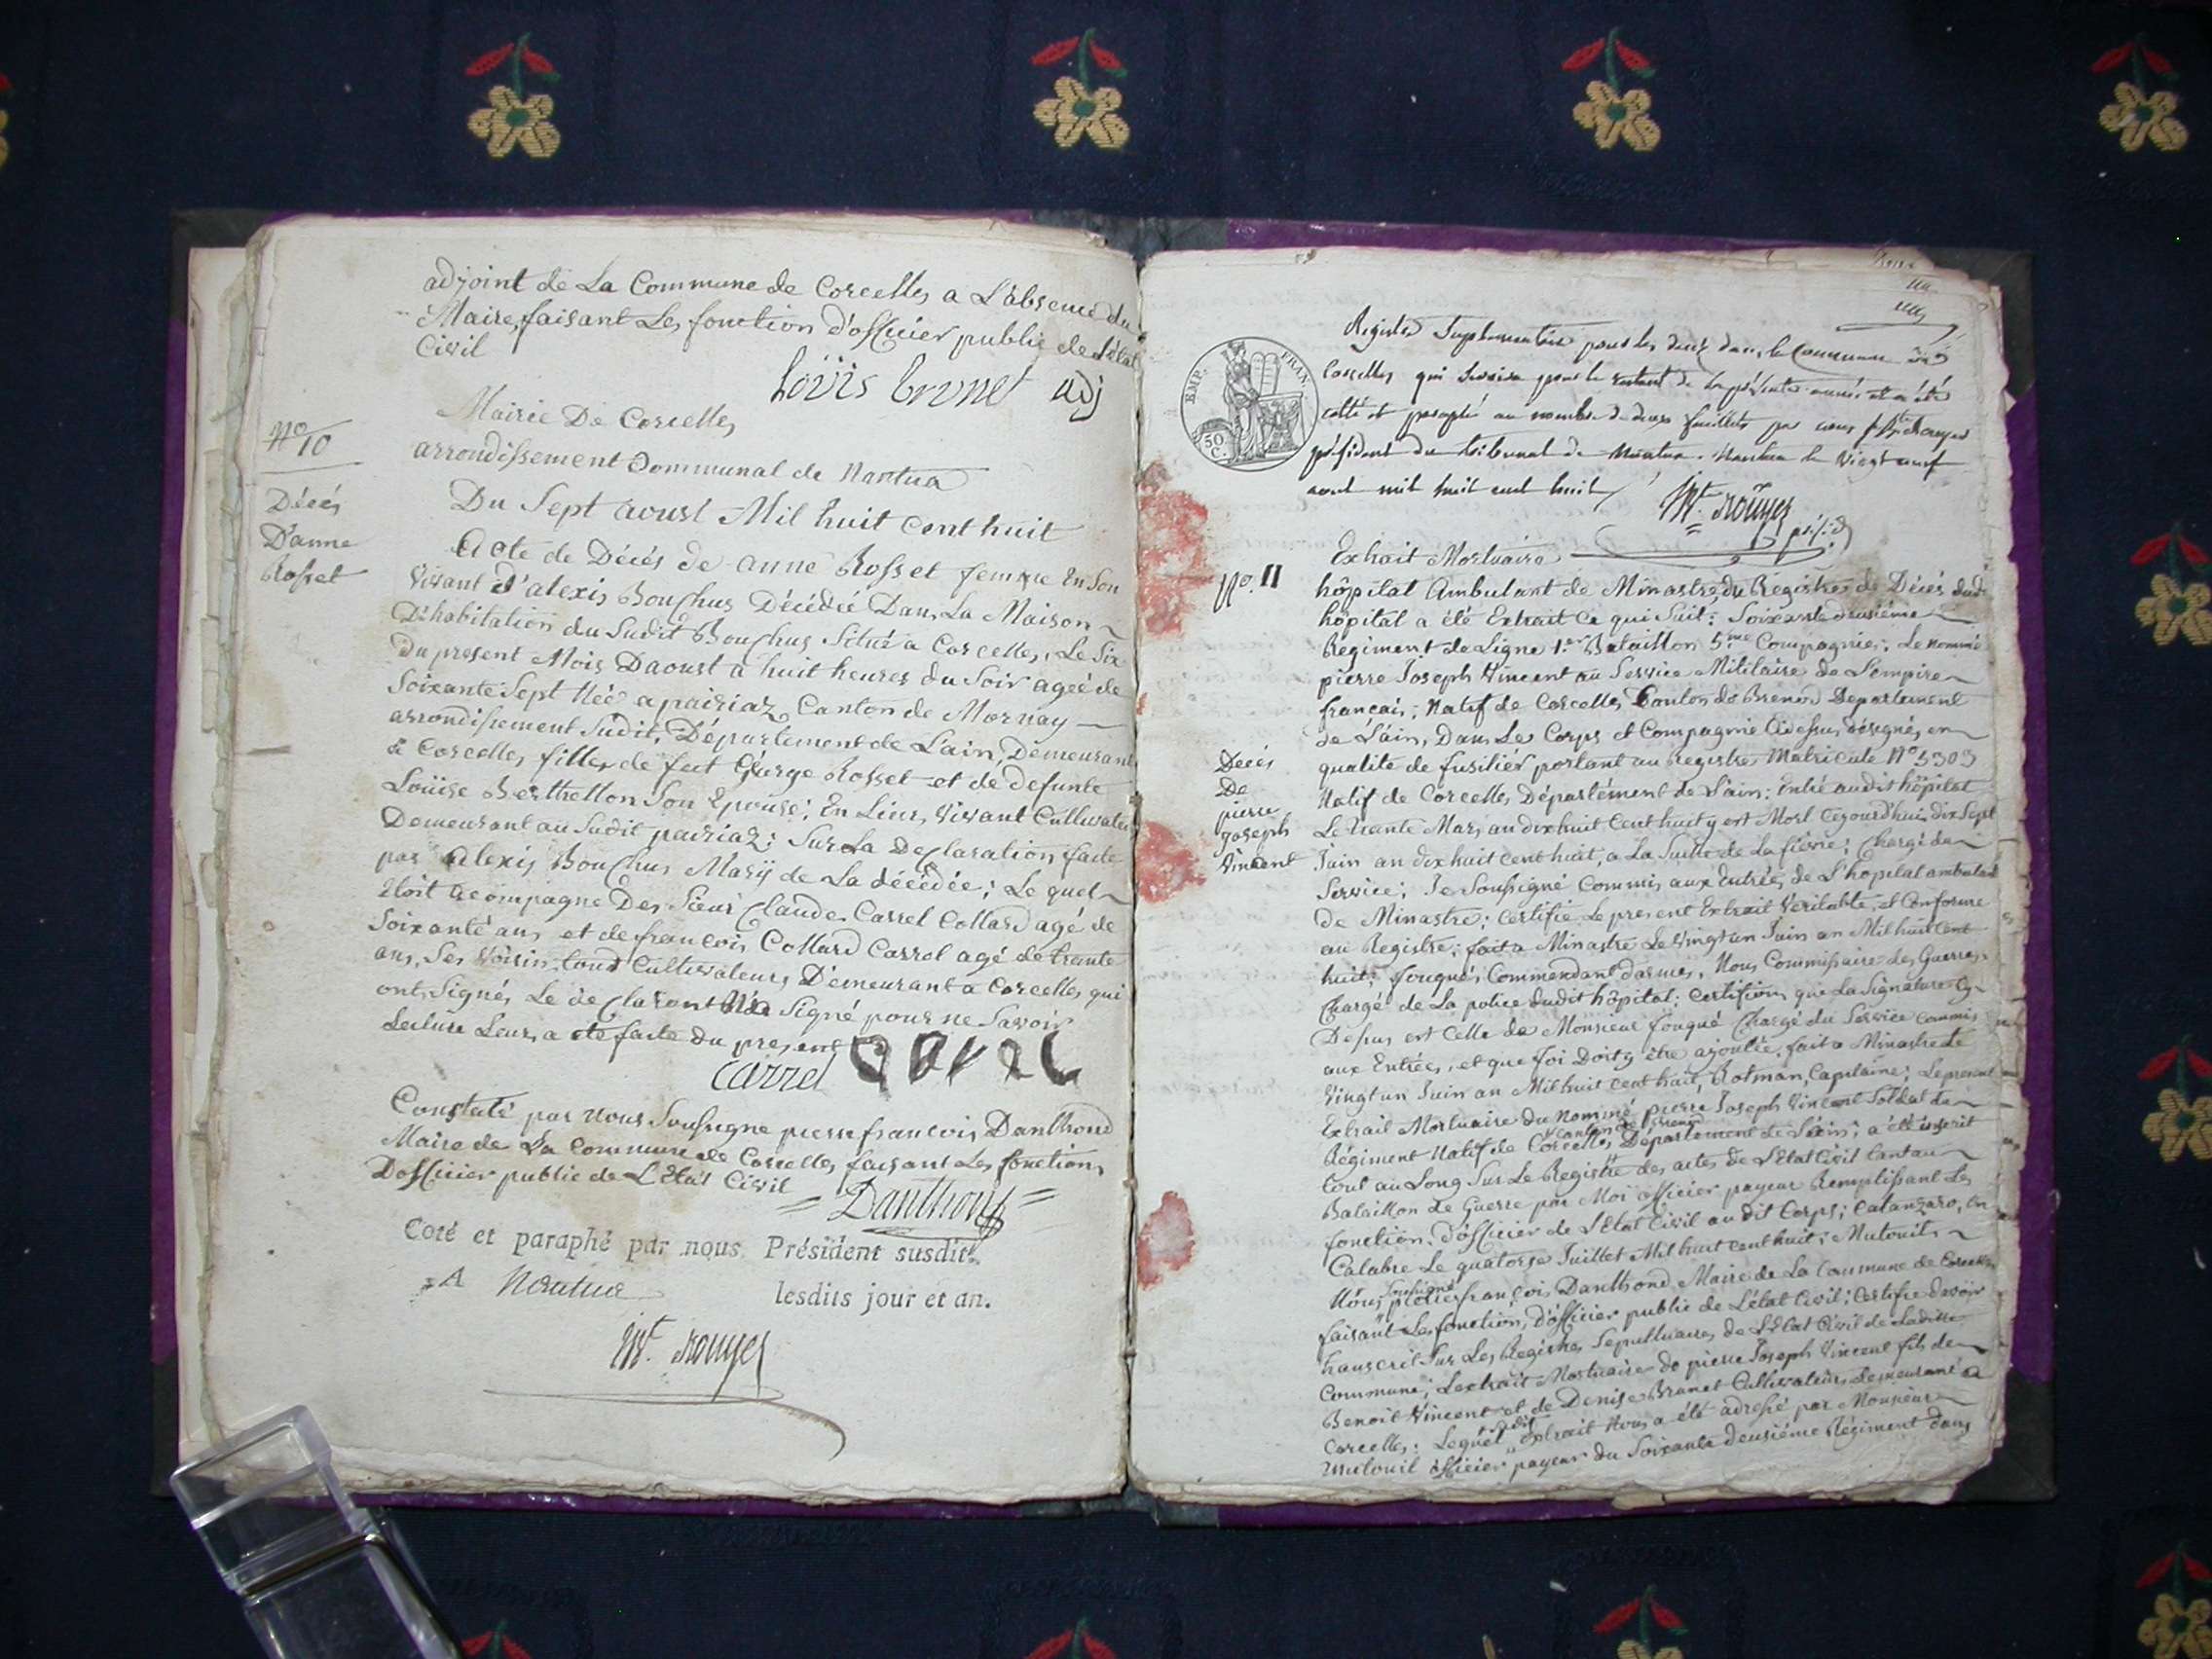 adjoint de La Commune de Corcelles a L'absence du
Maire, faisant Les fonction d'officier public de L'état
Civil
Loüis brunet adj
Mairie De Corcelles
arrondissement Communal de Nantua
N.o 10
Décés
D'anne
Rosset
Du Sept aoust Mil huit cent huit
Acte de Décés de anne Rosset femme En Son
Vivant d'alexis Bouchus Décédée Dans La Maison
D'habitation du Sudit Bouchus Situé a Corcelles, Le Six
Du present Mois Daoust a huit heures du Soir ageé de
Soixante Sept Née a pairiaz Canton de Mornay
arrondissement Sudit, Département de L'ain, Demeurant
à Corcelles, fille de feut George Rosset et de defunte
Loüise Berthellon Son Epouse; En Leurs Vivant Cultivateurs
Demeurant au Sudit pairiaz; Sur La Declaration faite
par Alexis Bouchus Mary de La décédée; Le quel
Etoit acompagne Des Sieur Claude Carrel Collard agé de
Soixante ans et de francois Collard Carrel agé de trante
ans, Ses Voisin, tous Cultivateurs Demeurant a Corcelles qui
ont Signés Le déclarant N'a Signé pour ne Savoir
Lecture Leurs a eté faite du present
Carrel
Constaté par nous Soussigne pierre francois Danthond
Maire de La Commune de Corcelles faisant Les fonctions
D'officier public de L'Etat Civil
Danthond
Coté et paraphé par nous Président susdit.
A Nantua lesdits jour et an.
EMP. FRAN.
50 C.
Registre Suplementaire pour les décès dans la Commune de
Corcelles qui Servira pour le restant de la présente année et a été
cotté et paraphé au nombre de deux feuillets par nous
président du tribunal de Nantua. Nantua le Vingt neuf
aout mil huit cent huit
Extrait Mortuaire
N.o 11
hôpital Ambulant de Minastre, du Registre de Décés dudit
hôpital a été Extrait Ce qui Suit: Soixante deusiéme
Regiment de Ligne 1.er Bataillon 5.me Compagnie; Le nommé
pierre Joseph Vincent au Service Militaire de L'empire
francais; Natif de Corcelles Canton de Brenod Departement
de L'ain, Dans Le Corps et Compagnie Cidessus désigné, en
Décés
De
pierre
Joseph
Vincent
qualite de fusilier portant au Registre Matricule N.o 5303
Natif de Corcelles Département de L'ain; Entré audit hôpital
Le trante Mars an dix huit Cent huit y est Mort Cejourd'hui dix Sept
Juin an dix huit cent huit, a La Suitte de La fiévre; Chargé de
Service; Je Soussigné Commis aux Entrées de L'hopital ambulant
de Minastre; Certifie Le present Extrait Veritable, et Conforme
au Registre; fait a Minastre Le Vingt un Juin an Mil huit Cent
huit; fouqué, Commendant d'armes, Nous Commissaire des Guerres,
Chargé de La police dudit hôpital; Certifions que La Signature Cy
Dessus est Celle de Monsieur fouqué Chargé du Service Commis
aux Entrées, et que foi Doit y être ajoutée, fait a Minastre Le
Vingt un Juin an Mil huit Cent huit, Rotman, Capitaine; Le present
Extrait Mortuaire du Nommé pierre Joseph Vincent Soldat de
Régiment Natif de Corcelles Canton de Brenod Département de L'ain; a été inscrit
tout au Long Sur Le Registre des actes de L'Etat Civil
Bataillon de Guerre par Moi officier payeur Remplissant Les
fonction, d'officier de L'Etat Civil au dit Corps; Catanzaro, en
Calabre Le quatorze Juillet Mil huit cent huit; Mutouit
Nous Soussigné pierre françois Danthond Maire de La Commune de Corcelles
faisant Les fonction, d'officier public de L'état Civil; Certifie davoir
transcrit Sur Les Registres Sepultuaires de L'Etat Civil de Laditte
Commune; Lextrait Mortuaire de pierre Joseph Vincent fils de
Benoit Vincent et de Denise Brunet Cultivateurs Demeurant a
Corcelles: Lequel dit extrait Nous a été adressé par Monsieur
Mutouit officier payeur du Soixante deusiéme Régiment dans